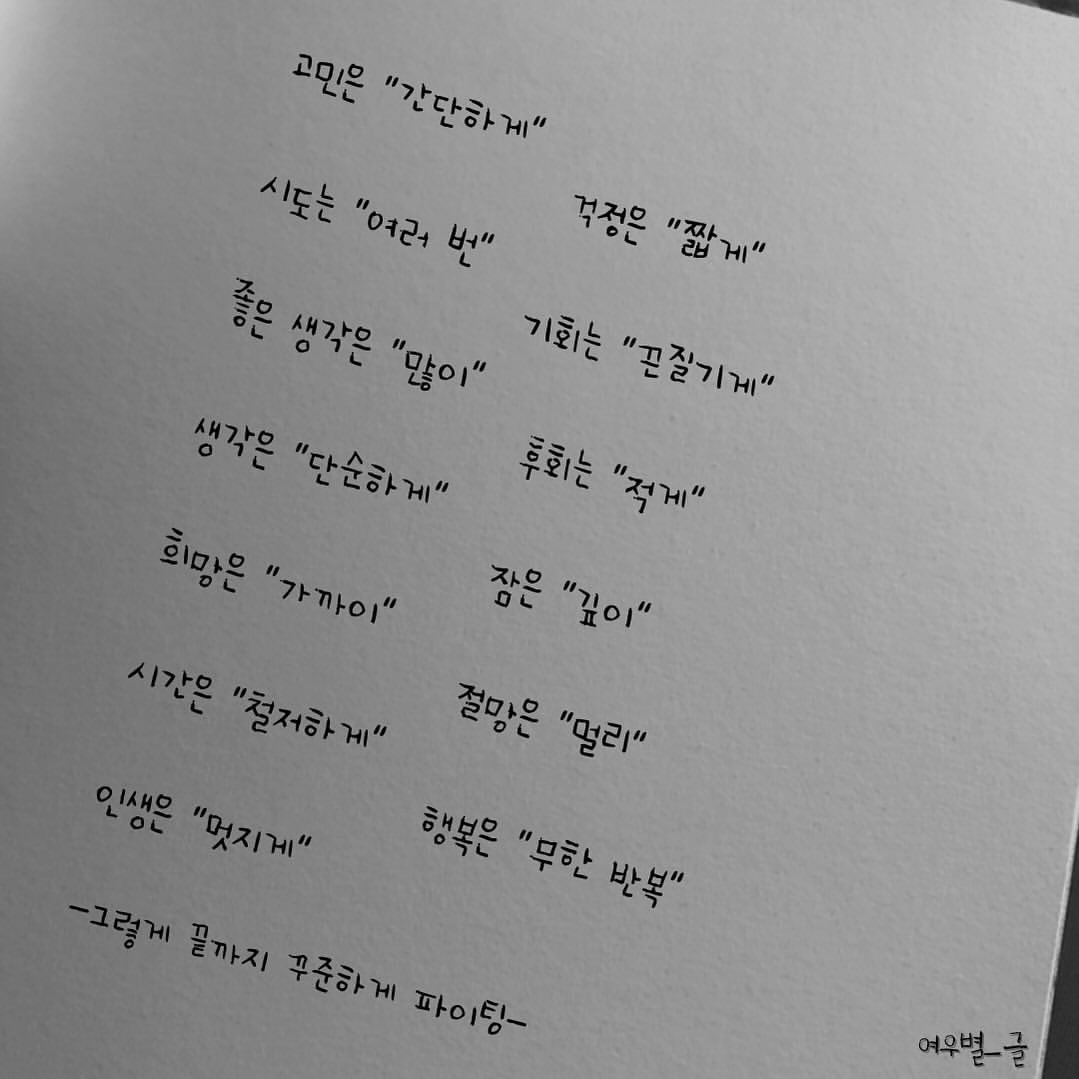 고민은 "간단하게"
걱정은 "짧게"
시도는 "여러 번"
기회는 "끈질기게"
좋은 생각은 "많이"
후회는 "적게"
생각은 "단순하게"
잠은 "깊이"
희망은 "가까이"
절망은 "멀리"
시간은 "철저하게"
행복은 "무한 반복"
인생은 "멋지게"
-그렇게 끝까지 꾸준하게 파이팅-
여우별_글